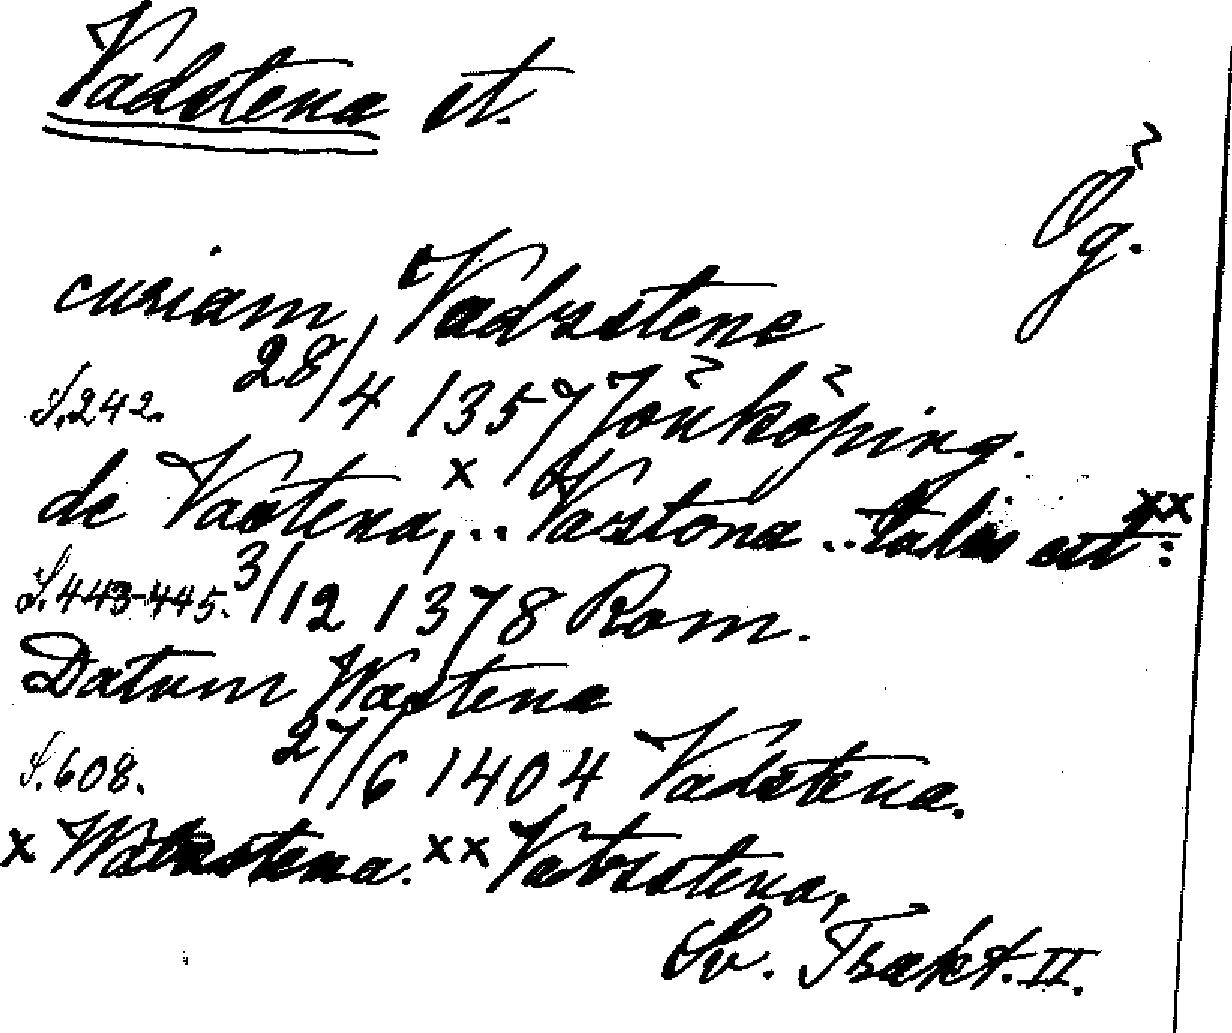 Vadstena st.
Ög.
curiam Vadzstene
S.242. 28/4 1357 Jönköping.
de Vastena, x .. Vazstona .. talis est xx:
S.443-445. 3/12 1378 Rom.
Datum Wastena
S.608. 27/6 1404 Vadstena.
x Watzstena. xx Vatzstena,
Sv. Trakt. II.